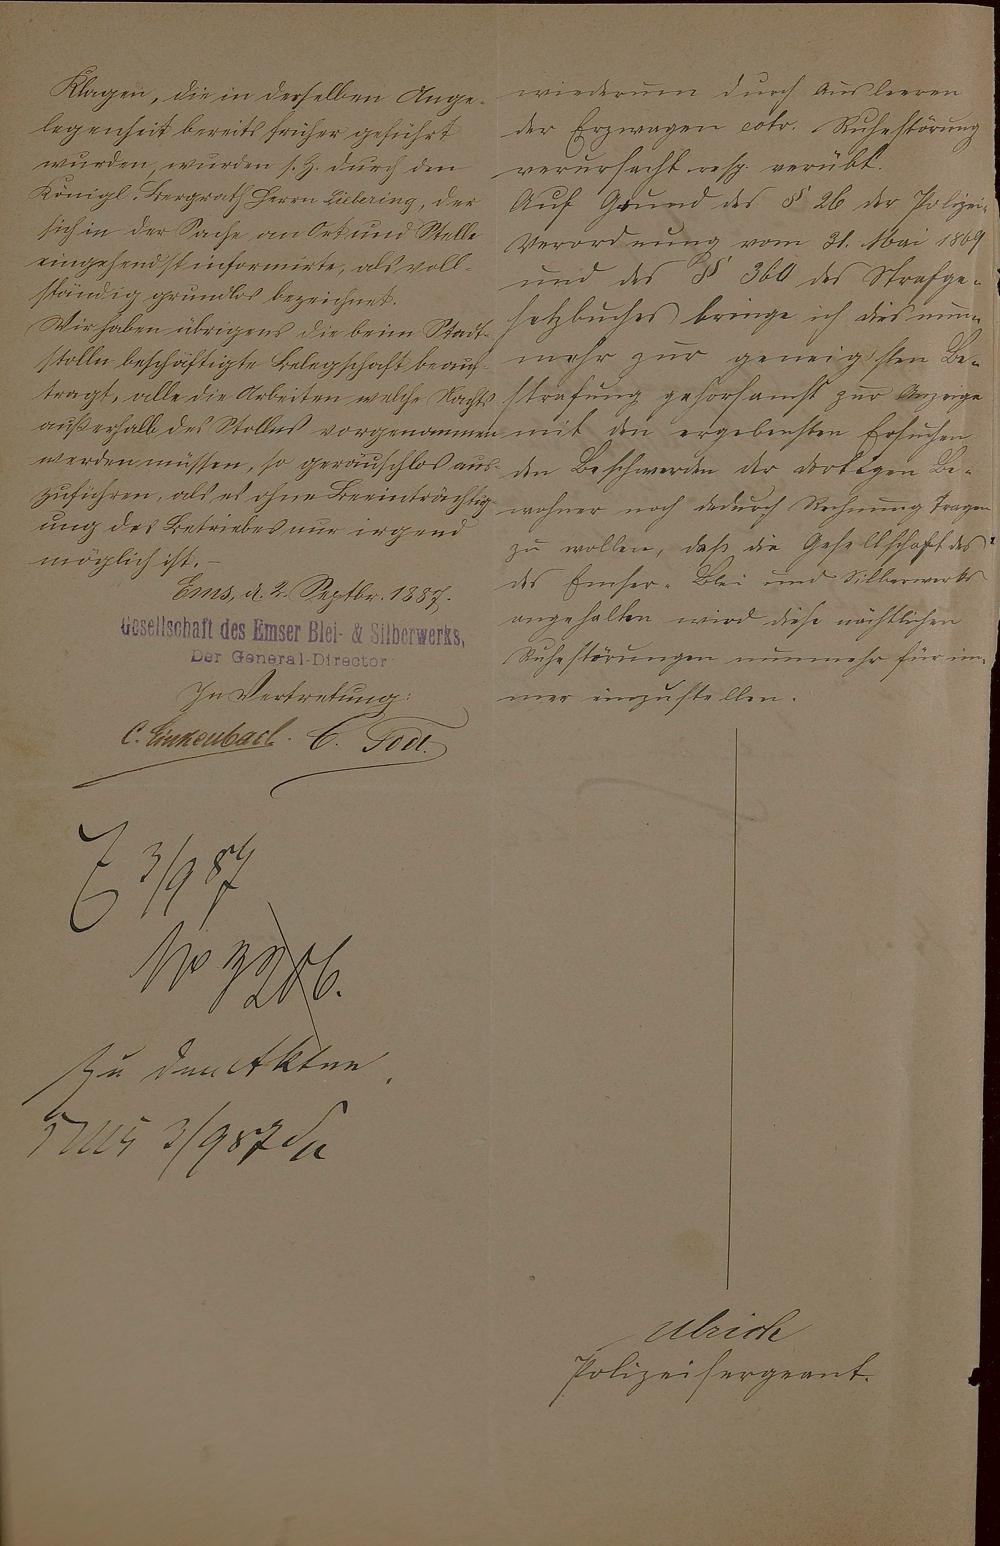 Klagen, die in derselben Ange-
legenheit bereits früher geführt
wurden, wurden s. Z. durch den
Königl. Bergrath Herrn Liebering, der
sich in der Sache an Ort und Stelle
eingehendst informirte, als voll-
ständig grundlos bezeichnet.
Wir haben übrigens die beim Stadt-
stolln beschäftigte Belegschaft beauf-
tragt, alle die Arbeiten welche Nachts
außerhalb des Stollns vorgenommen
werden müssen, so geräuschlos aus-
zuführen, als es ohne Beeinträchtig-
ung des Betriebes nur irgend
möglich ist. –
Ems, d. 2. Septbr. 1887.
Gesellschaft des Emser Blei- & Silberwerks,
Der General-Director
In Vertretung:
C. Linkenbach. C. Todt.
E 3/9 87
No
zu den Akten.
Ems 3/9 87
wiederum durch Ausleeren
der Erzwagen Ruhestörung
verursacht resp. verübt.
Auf Grund des § 26 der Polizei-
Verordnung vom 31. Mai 1869
und des § 360 des Strafge-
setzbuches bringe ich dies nun-
mehr zur geneigtesten Be-
strafung gehorsamst zur Anzeige
mit dem ergebensten Ersuchen
den Beschwerden der dortigen Be-
wohner noch dadurch Rechnung tragen
zu wollen, daß die Gesellschaft des
des Emser-Blei und Silberwerks
angehalten wird diese nächtlichen
Ruhestörungen nunmehr für im-
mer einzustellen.
Ulrich
Polizeisergeant.